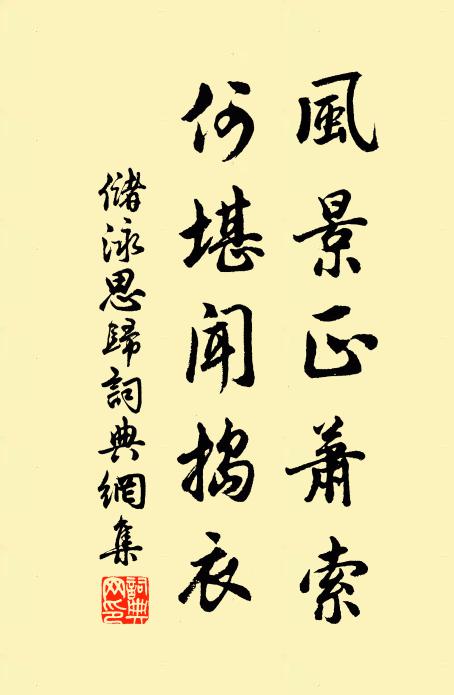 風景正蕭索
何堪聞搗衣
儲泳思歸詞典網集
詞典网印